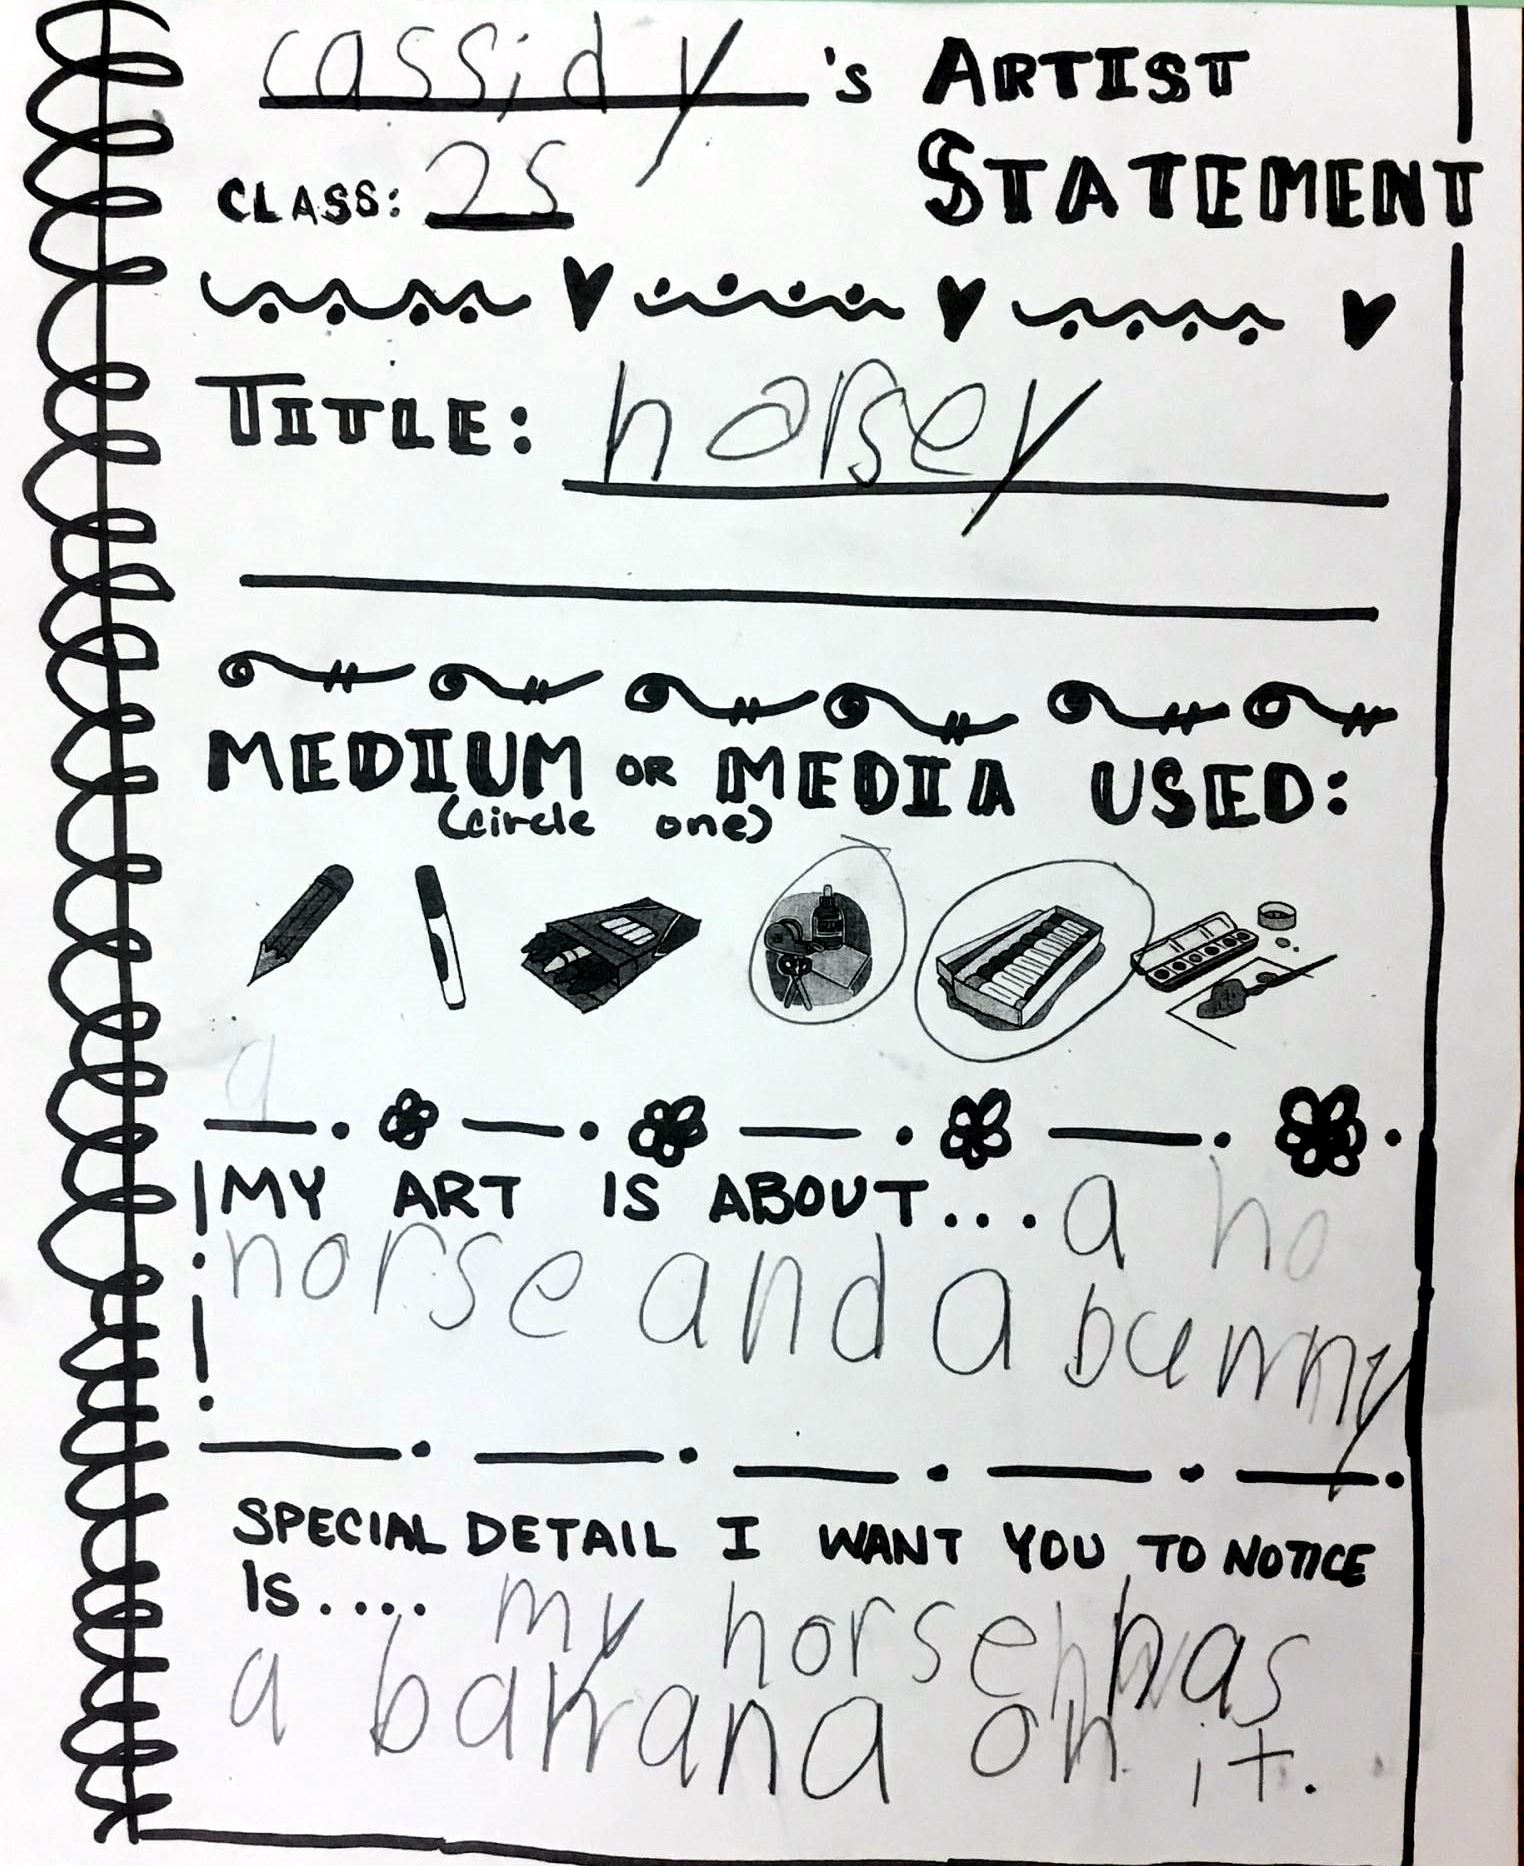 cassidy's ARTIST
STATEMENT
CLASS: 25
TITLE: horsey
MEDIUM OR MEDIA USED:
(circle one)
a
MY ART IS ABOUT... a ho
horse and a bunny
SPECIAL DETAIL I WANT YOU TO NOTICE
IS.... my horse has
a banana on it.